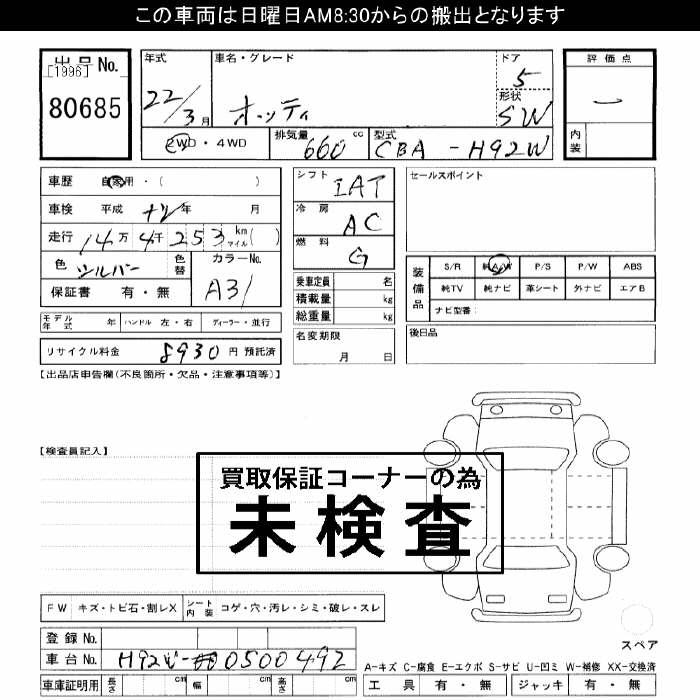 この車両は日曜日AM8:30からの搬出となります
出品 No.
[1996]
80685
年式 22/3月
車名・グレード オッティ
ドア 5
形状 SW
評価点 一
内装
2WD・4WD
排気量 660 cc
型式 CBA-H92W
車歴 自家用・( )
車検 平成 年 月
走行 14万4千253 km マイル( )
色 シルバー
色替
カラーNo. A31
保証書 有・無
シフト IAT
冷房 AC
燃料 G
乗車定員 名
積載量 kg
総重量 kg
名変期限 月 日
セールスポイント
装備品
S/R 純A/W P/S P/W ABS
純TV 純ナビ 革シート 外ナビ エアB
ナビ型番:
後日品
モデル年式 年 ハンドル 左・右 ディーラー・並行
リサイクル料金 8930 円 預託済
【出品店申告欄(不良箇所・欠品・注意事項等)】
【検査員記入】
買取保証コーナーの為
未検査
FW キズ・トビ石・割レX
シート内装 コゲ・穴・汚レ・シミ・破レ・スレ
登録 No.
車台 No. H92W-0500492
車庫証明用 長さ cm 幅 cm 高さ cm
スペア
A-キズ C-腐食 E-エクボ S-サビ U-凹ミ W-補修 XX-交換済
工具 有・無 ジャッキ 有・無